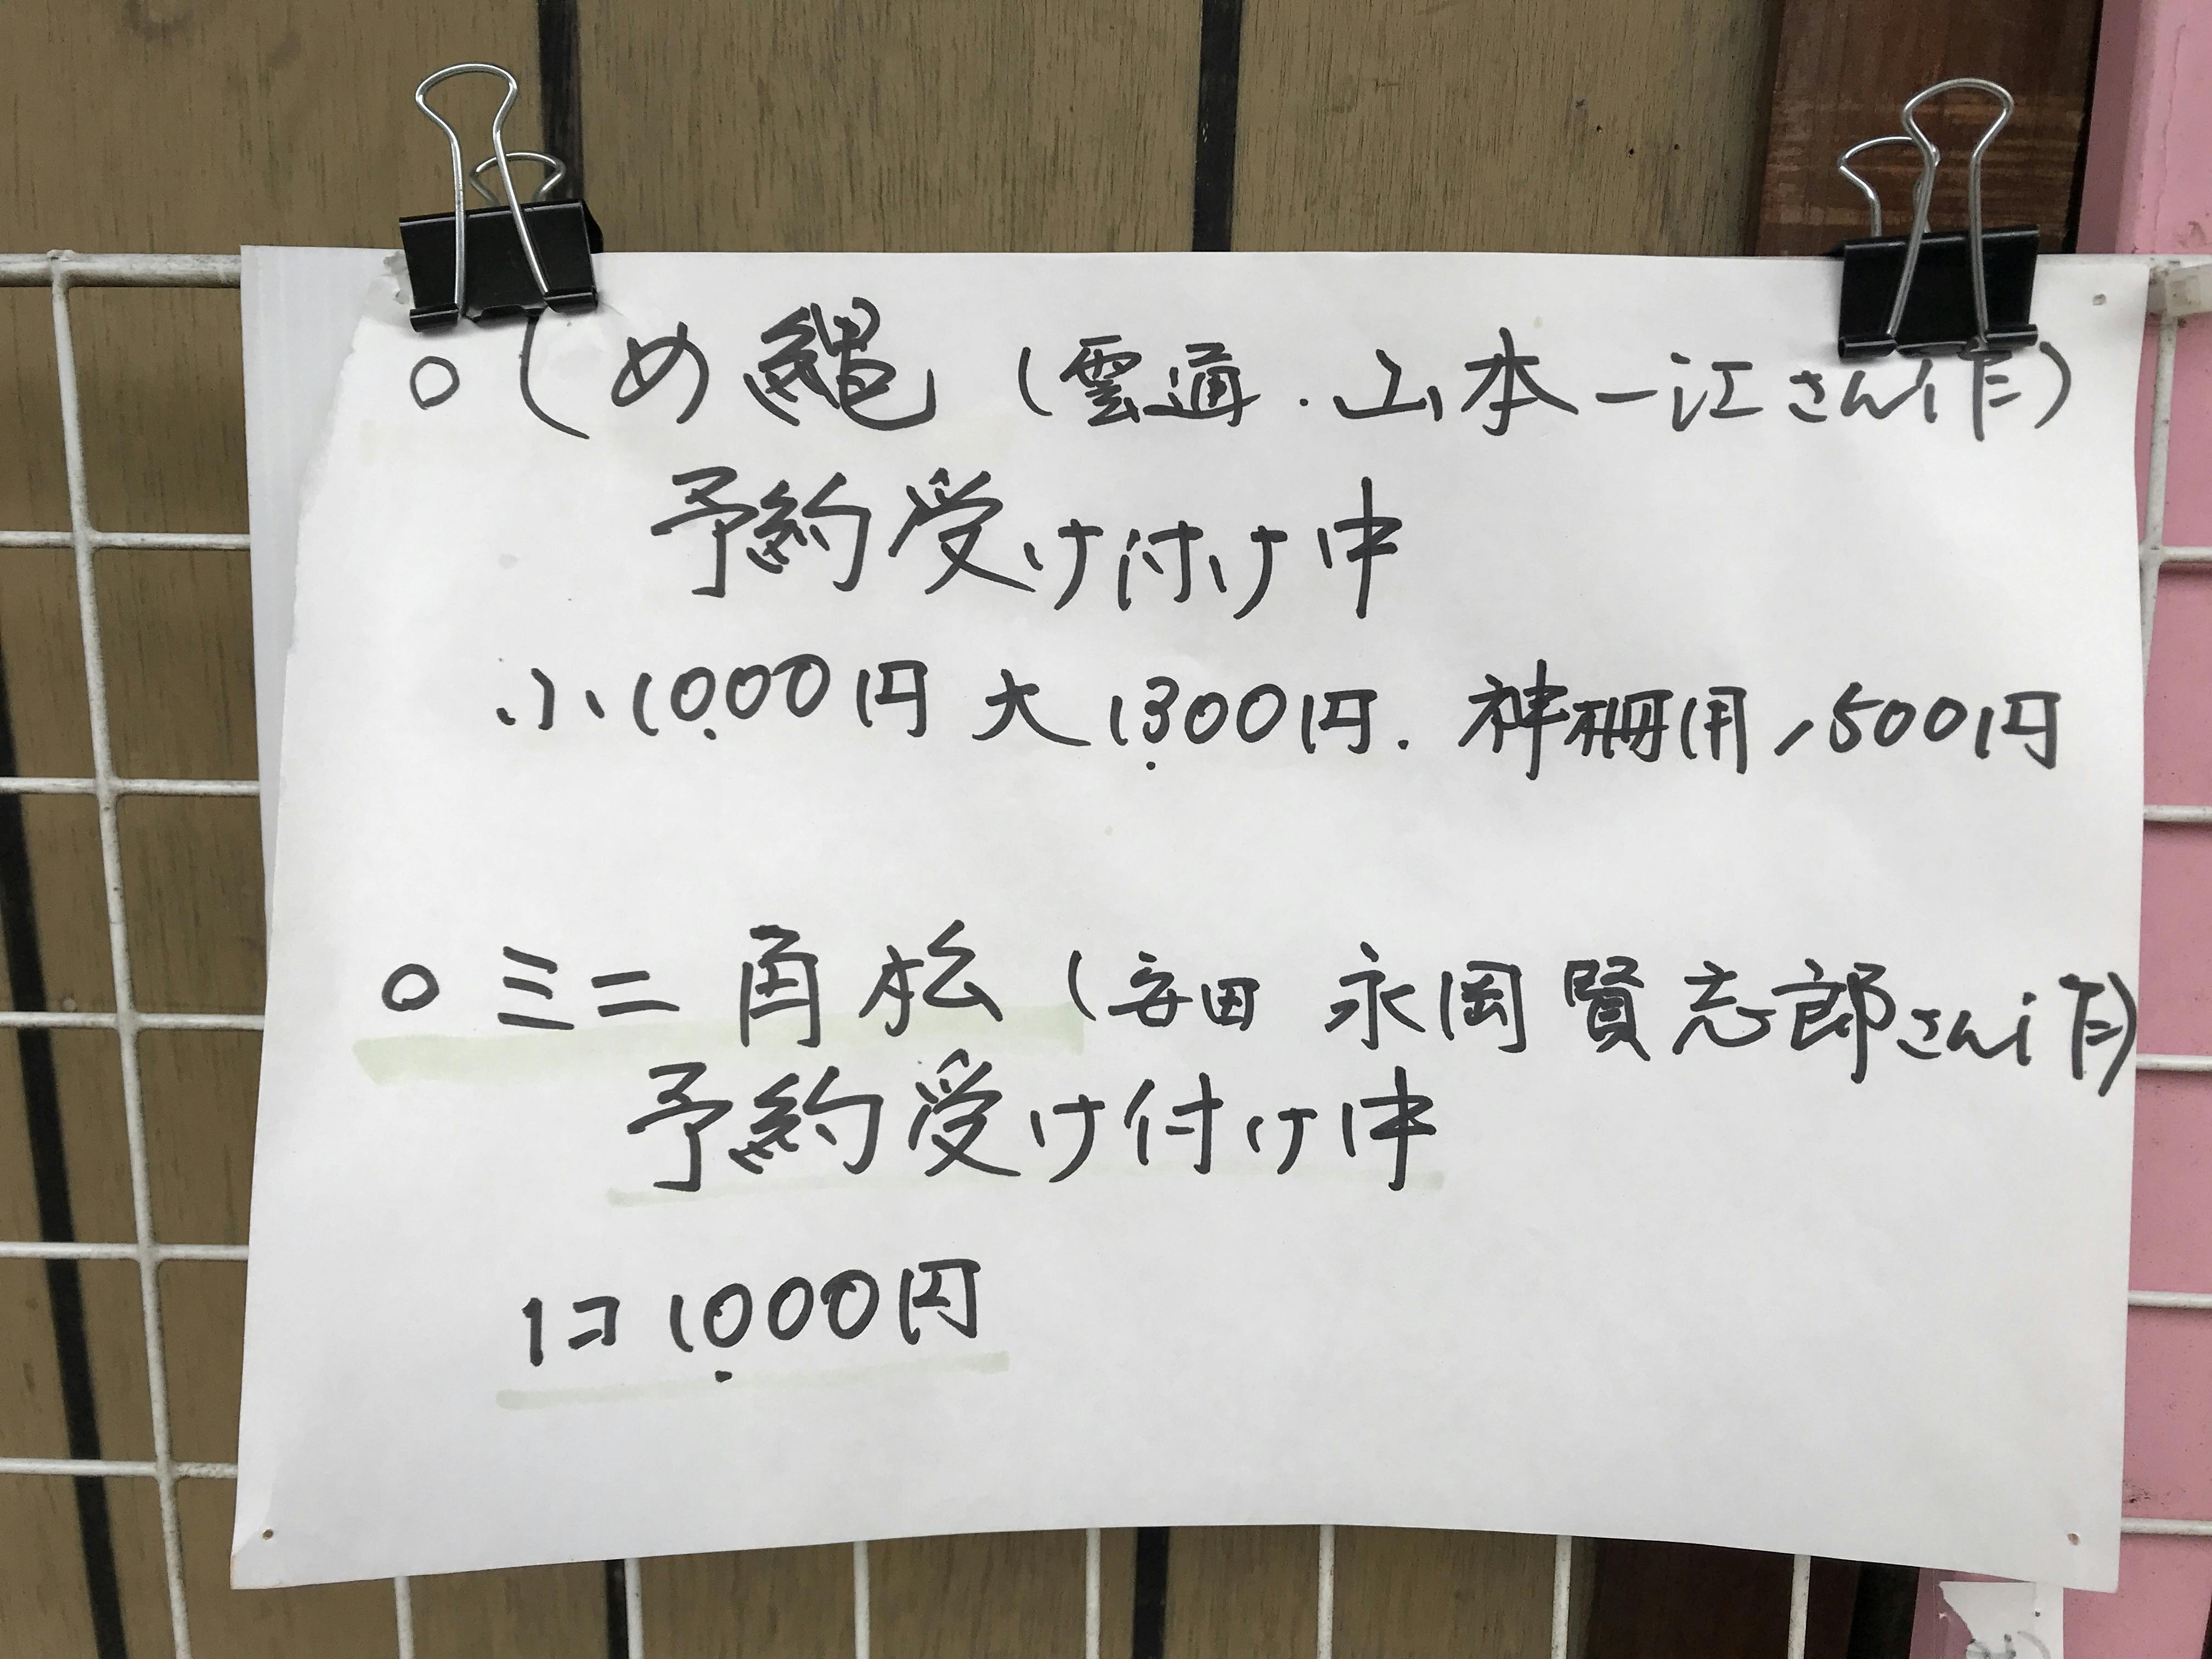 ○しめ縄（雲通・山本一江さん作）
予約受け付け中
小1000円 大1300円. 神棚用1500円
○ミニ角松（安田 永岡賢志郎さん作）
予約受け付け中
1コ 1000円